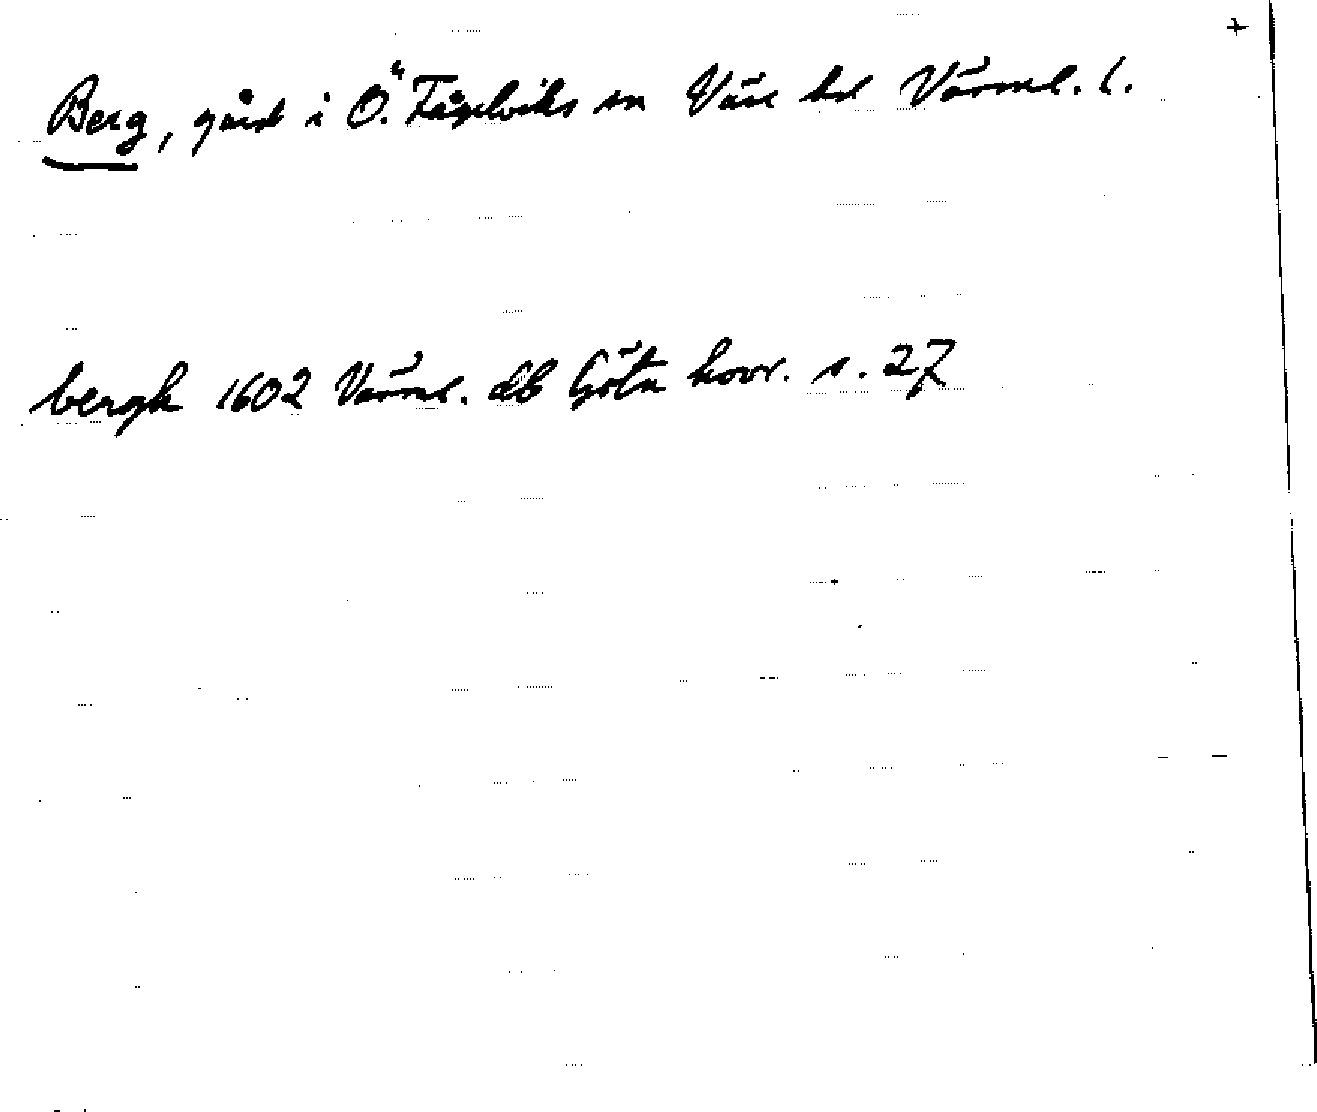 +
Berg, gård i Ö. Fågelviks sn Väse hd Värml. l.
bergh 1602 Värml. db Göta hovr. s. 27